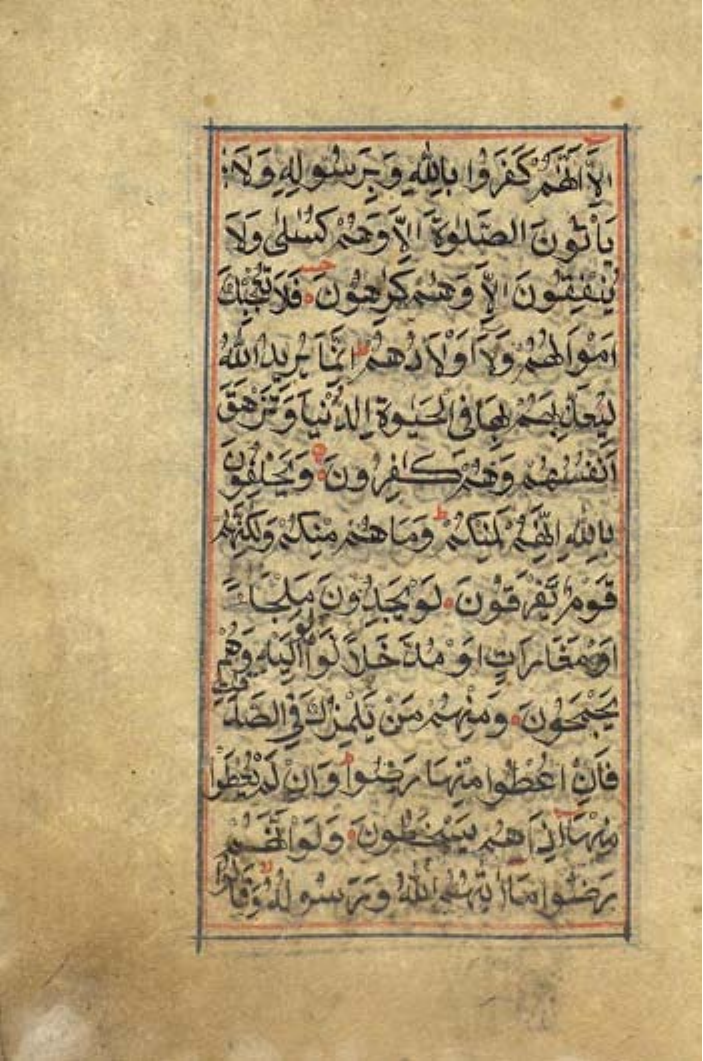 اِلَّا اَنَّهُمْ كَفَرُوا بِاللّٰهِ وَبِرَسُولِهِ وَلَا
يَأْتُونَ الصَّلٰوةَ اِلَّا وَهُمْ كُسَالٰى وَلَا
يُنْفِقُونَ اِلَّا وَهُمْ كٰرِهُونَ فَلَا تُعْجِبْكَ
اَمْوَالُهُمْ وَلَا اَوْلَادُهُمْ ط اِنَّمَا يُرِيدُ اللّٰهُ
لِيُعَذِّبَهُمْ بِهَا فِى الْحَيٰوةِ الدُّنْيَا وَتَزْهَقَ
اَنْفُسُهُمْ وَهُمْ كٰفِرُونَ وَيَحْلِفُونَ
بِاللّٰهِ اِنَّهُمْ لَمِنْكُمْ ط وَمَا هُمْ مِنْكُمْ وَلٰكِنَّهُمْ
قَوْمٌ يَّفْرَقُونَ لَوْ يَجِدُونَ مَلْجَاً
اَوْ مَغَارَاتٍ اَوْ مُدَّخَلًا لَوَلَّوْا اِلَيْهِ وَهُمْ
يَجْمَحُونَ وَمِنْهُمْ مَنْ يَلْمِزُكَ فِى الصَّدَقٰتِ
فَاِنْ اُعْطُوا مِنْهَا رَضُوا وَاِنْ لَمْ يُعْطَوْا
مِنْهَا اِذَا هُمْ يَسْخَطُونَ وَلَوْ اَنَّهُمْ
رَضُوا مَا اٰتٰىهُمُ اللّٰهُ وَرَسُولُهُ وَقَالُوا